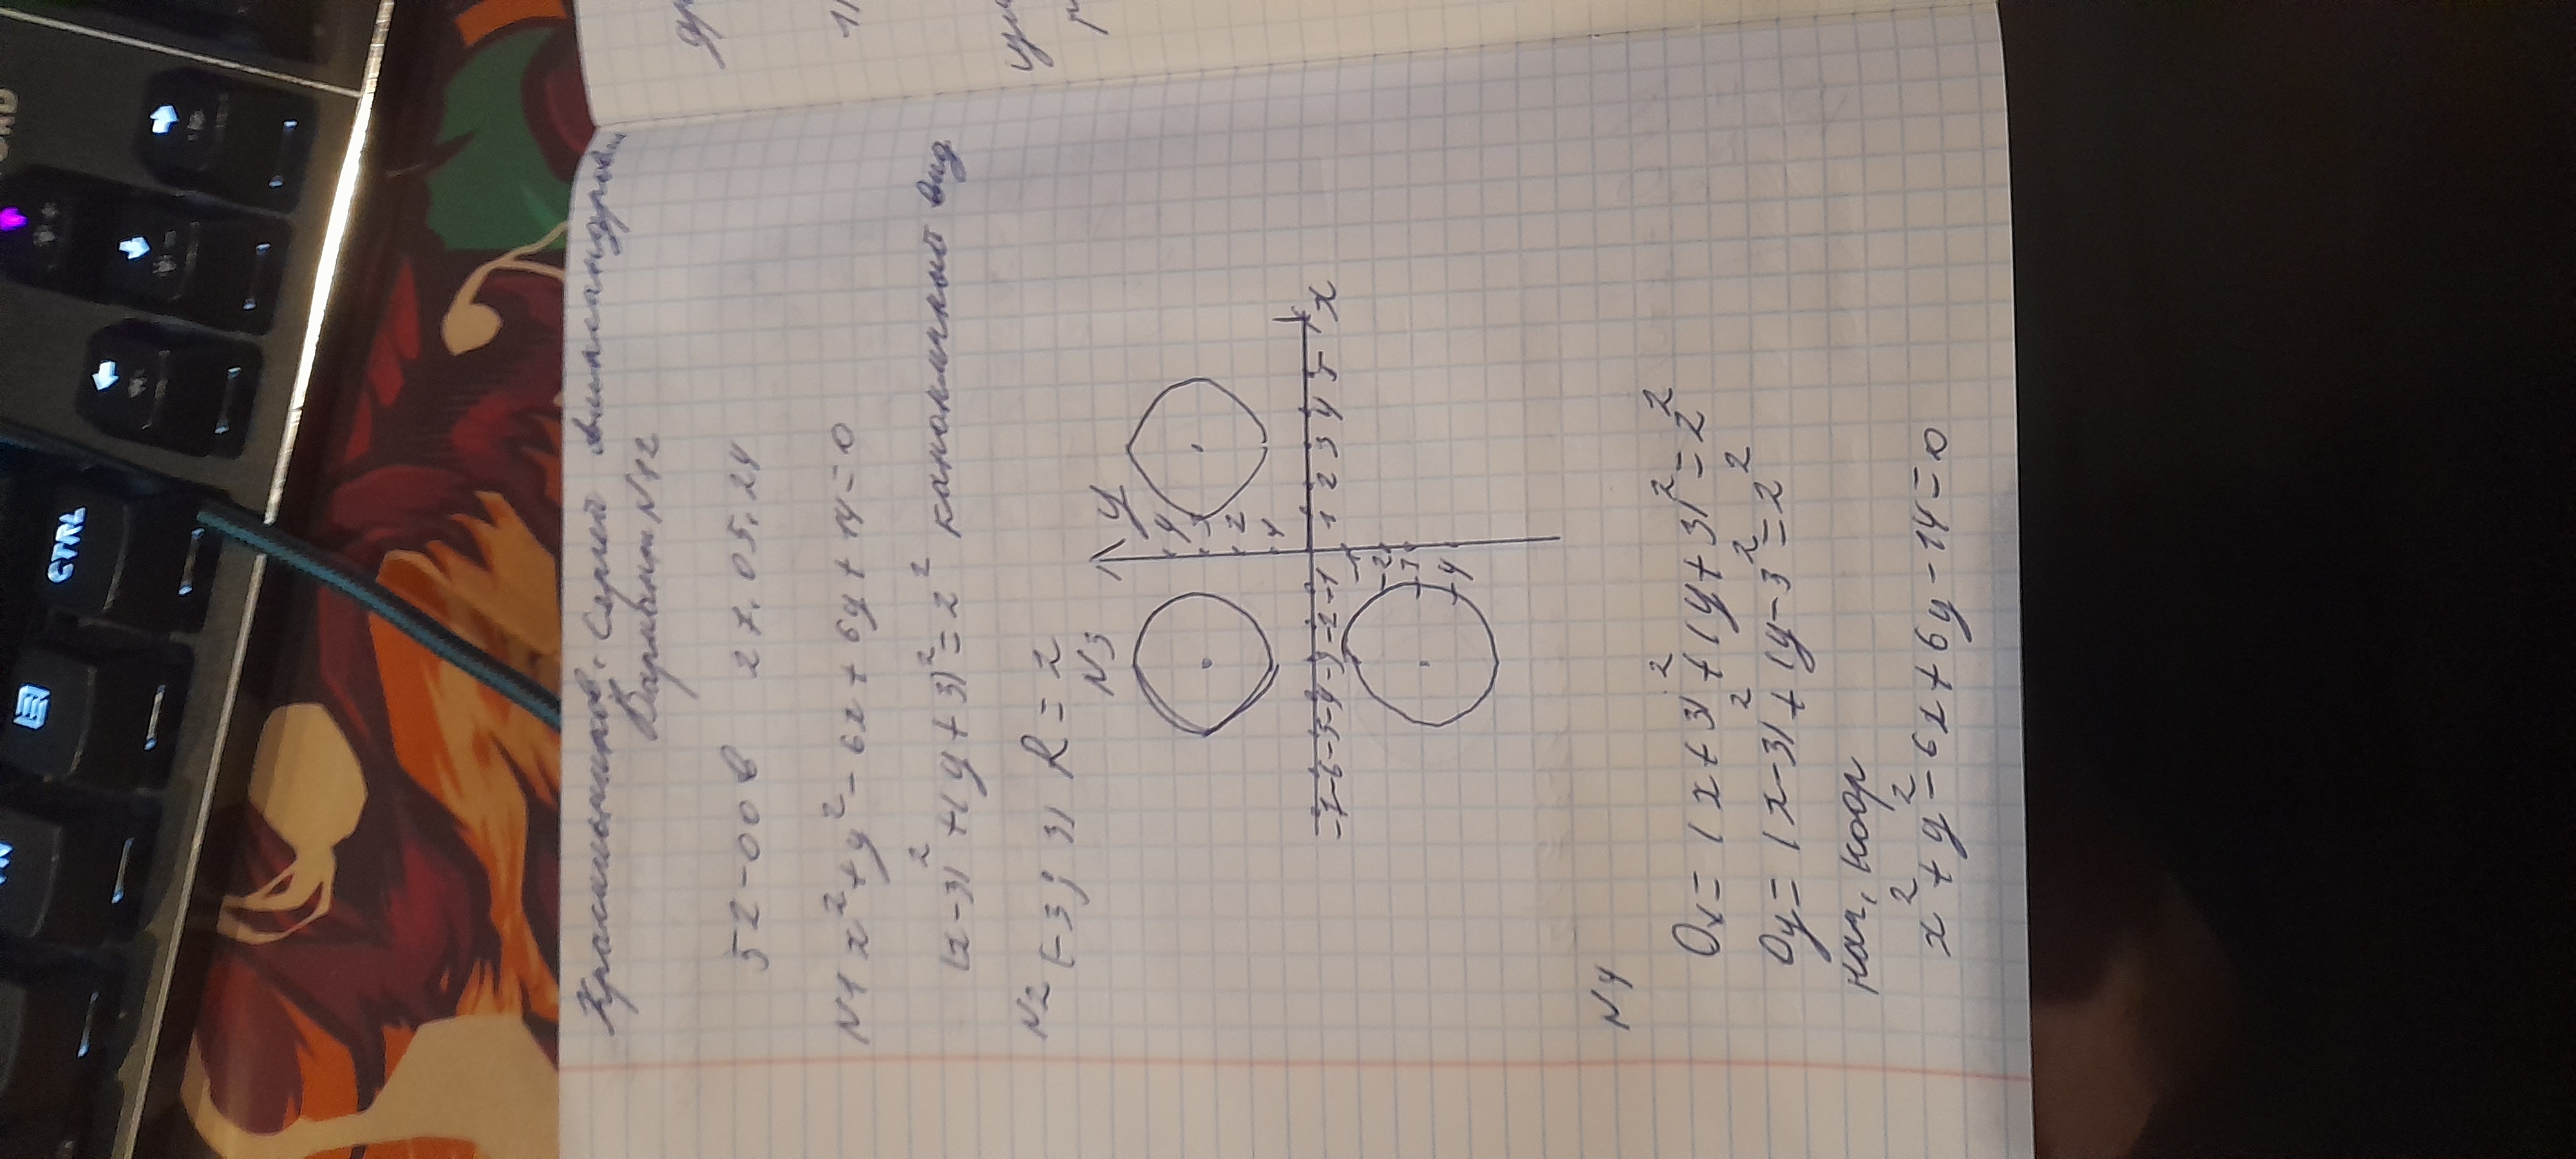 CTRL
Красильников Сергей Александрович
Вариант N12
52-00в 27.05.24
N1 x²+y²-6x+6y+14=0
(x-3)²+(y+3)²=2² каноничный вид
N2 (-3; 3) R=2
N3
y
4
3
2
1
-7 -6 -5 -4 -3 -2 -1 1 2 3 4 5 x
-1
-2
-3
-4
N4
Ox= (x+3)²+(y+3)²=2²
Oy= (x-3)²+(y-3²=2²
нач, коор
x²+y²-6x+6y-14=0